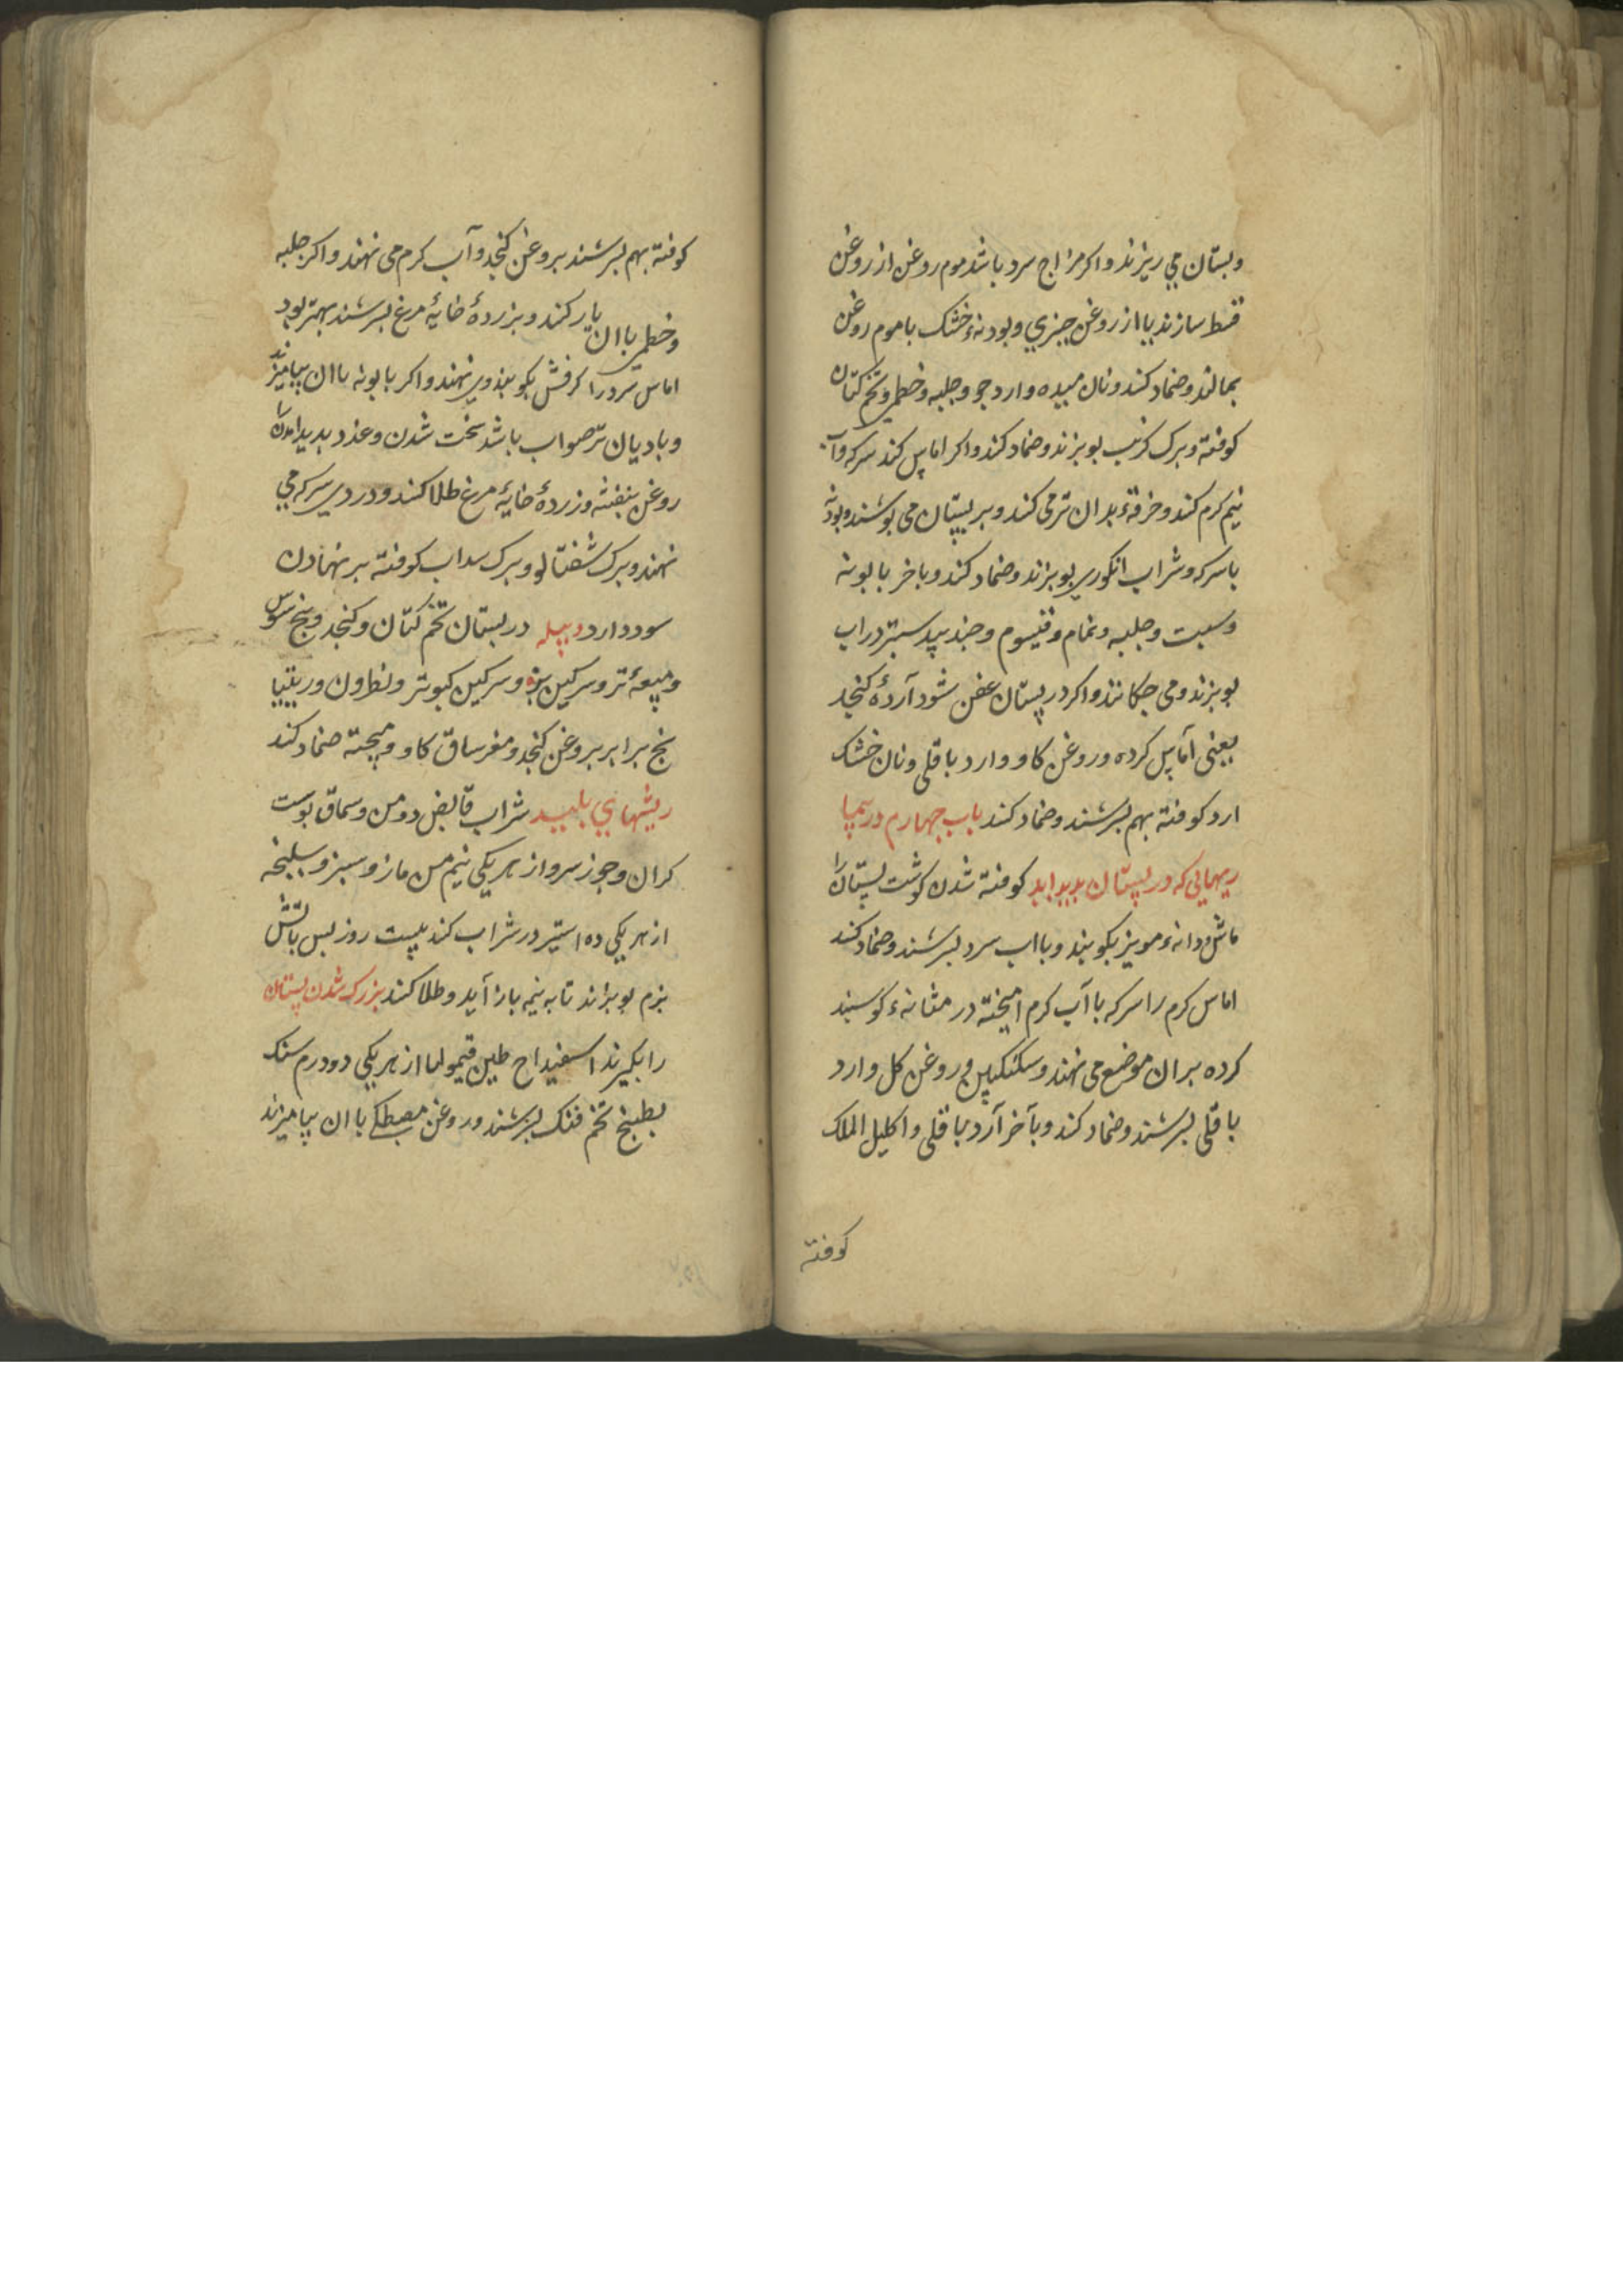 وبستان می ریزند واکر مزاج سرد باشد موم روغن از روغن
قسط سازند یا از روغن خیری وبودنهٔ خشک با موم روغن
بمالند وضماد کنند ونان میده وارد جو وحلبه وخطمی وتخم کتان
کوفته وبرک کرنب بوبزند وضماد کنند واکر اماس کند سرکه وآب
نیم کرم کنند وخرقهٔ بدان تر می کنند وبر پستان می بوشند وبودنه
با سرکه وشراب انکوری بوبزند وضماد کنند وباخر بابونه
وسبت وحلبه ونمام وقیسوم وجند بیدستر در اب
بوبزند ومی جکانند واکر در پستان عفن شود آردهٔ کنجد
یعنی آماس کرده وروغن کاو وارد باقلی ونان خشک
ارد کوفته بهم بسرشند وضماد کنند باب جهارم در سمپا
ریهایی که در پستان بدید اید کوفته شدن کوشت پستان را
ماش ودانهٔ مویز بکوبند وبا اب سرد بسرشند وضماد کنند
اماس کرم را سرکه با آب کرم امیخته در مثانهٔ کوسبند
کرده بران موضع می نهند وسکنکبین وروغن کل وارد
باقلی بسرشند وضماد کنند وبآخر آرد باقلی واکلیل الملک
کوفته
کوفته بهم بسرشند بروغن کنجد وآب کرم می نهند واکر حلبه
وخطمی با ان یار کنند وبزردهٔ خایهٔ مرغ بسرشند بهتر بود
اماس سرد را کرفش بکوبند ومی نهند واکر بابونه با ان بیامیزند
وبادیان تر صواب باشد سخت شدن وغدد بدید امدن را
روغن بنفشه وزردهٔ خایهٔ مرغ طلا کنند ودردی سرکه می
نهند وبرک شفتالو وبرک سداب کوفته بر نهادن
سود دارد دبیله در بستان تخم کتان وکنجد وبیخ سوس
ومیعهٔ تر وسرکین بز وسرکین کبوتر ونطرون وریتیا
نج برابر بروغن کنجد ومغز ساق کاو ومیبخته ضماد کنند
ریشهای بلید شراب قابض دو من وسماق بوست
کران وجوز سرو از هر یکی نیم من مازو سبز وسلیخه
از هر یکی ده استیر در شراب کنند بیست روز بس باتش
بزم بوبزاند تا به نیمه باز آید وطلا کنند بزرک شدن پستان
را بکیرند اسفیداج طین قیمولیا از هر یکی دو درم سنک
بطبیخ تخم فنک بسرشند وروغن مصطکی با ان بیامیزند